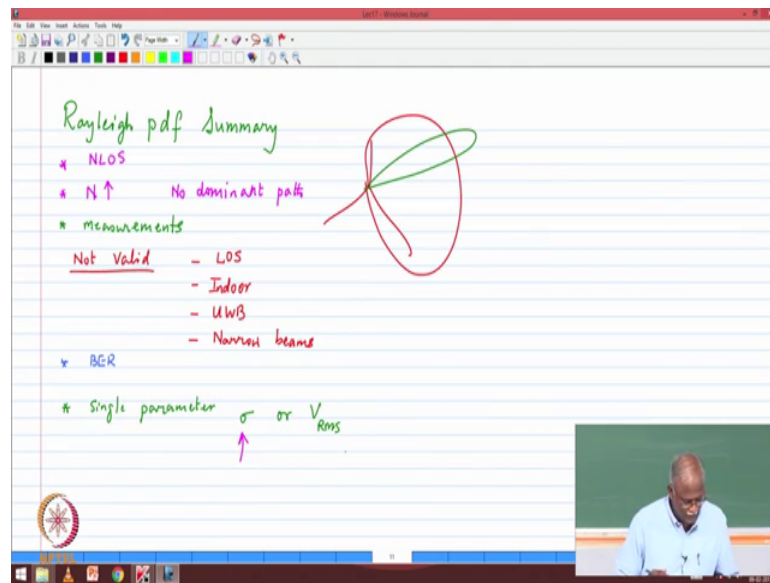 Lect17 - Windows Journal
File Edit View Insert Actions Tools Help
Page Width
B I
Rayleigh pdf Summary
* NLOS
* N↑ No dominant path
* measurements
Not Valid - LOS
- Indoor
- UWB
- Narrow beams
* BER
* Single parameter σ or V_RMS
↑
NPTEL
11